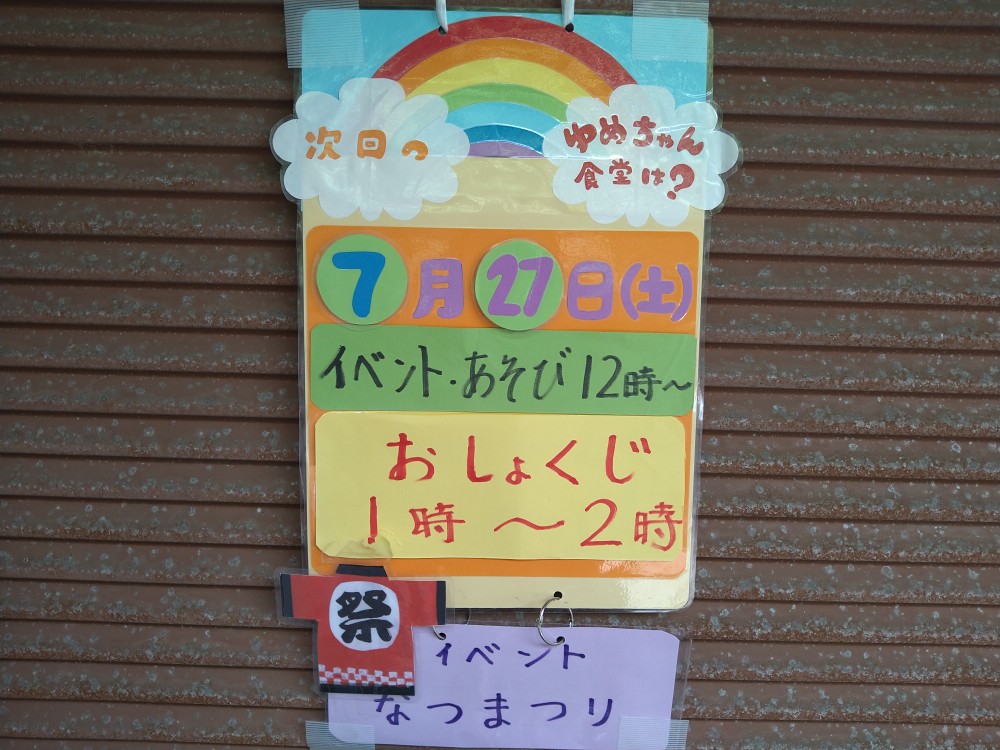 次回の
ゆめちゃん
食堂は?
7月27日(土)
イベント・あそび12時~
おしょくじ
1時~2時
祭
イベント
なつまつり